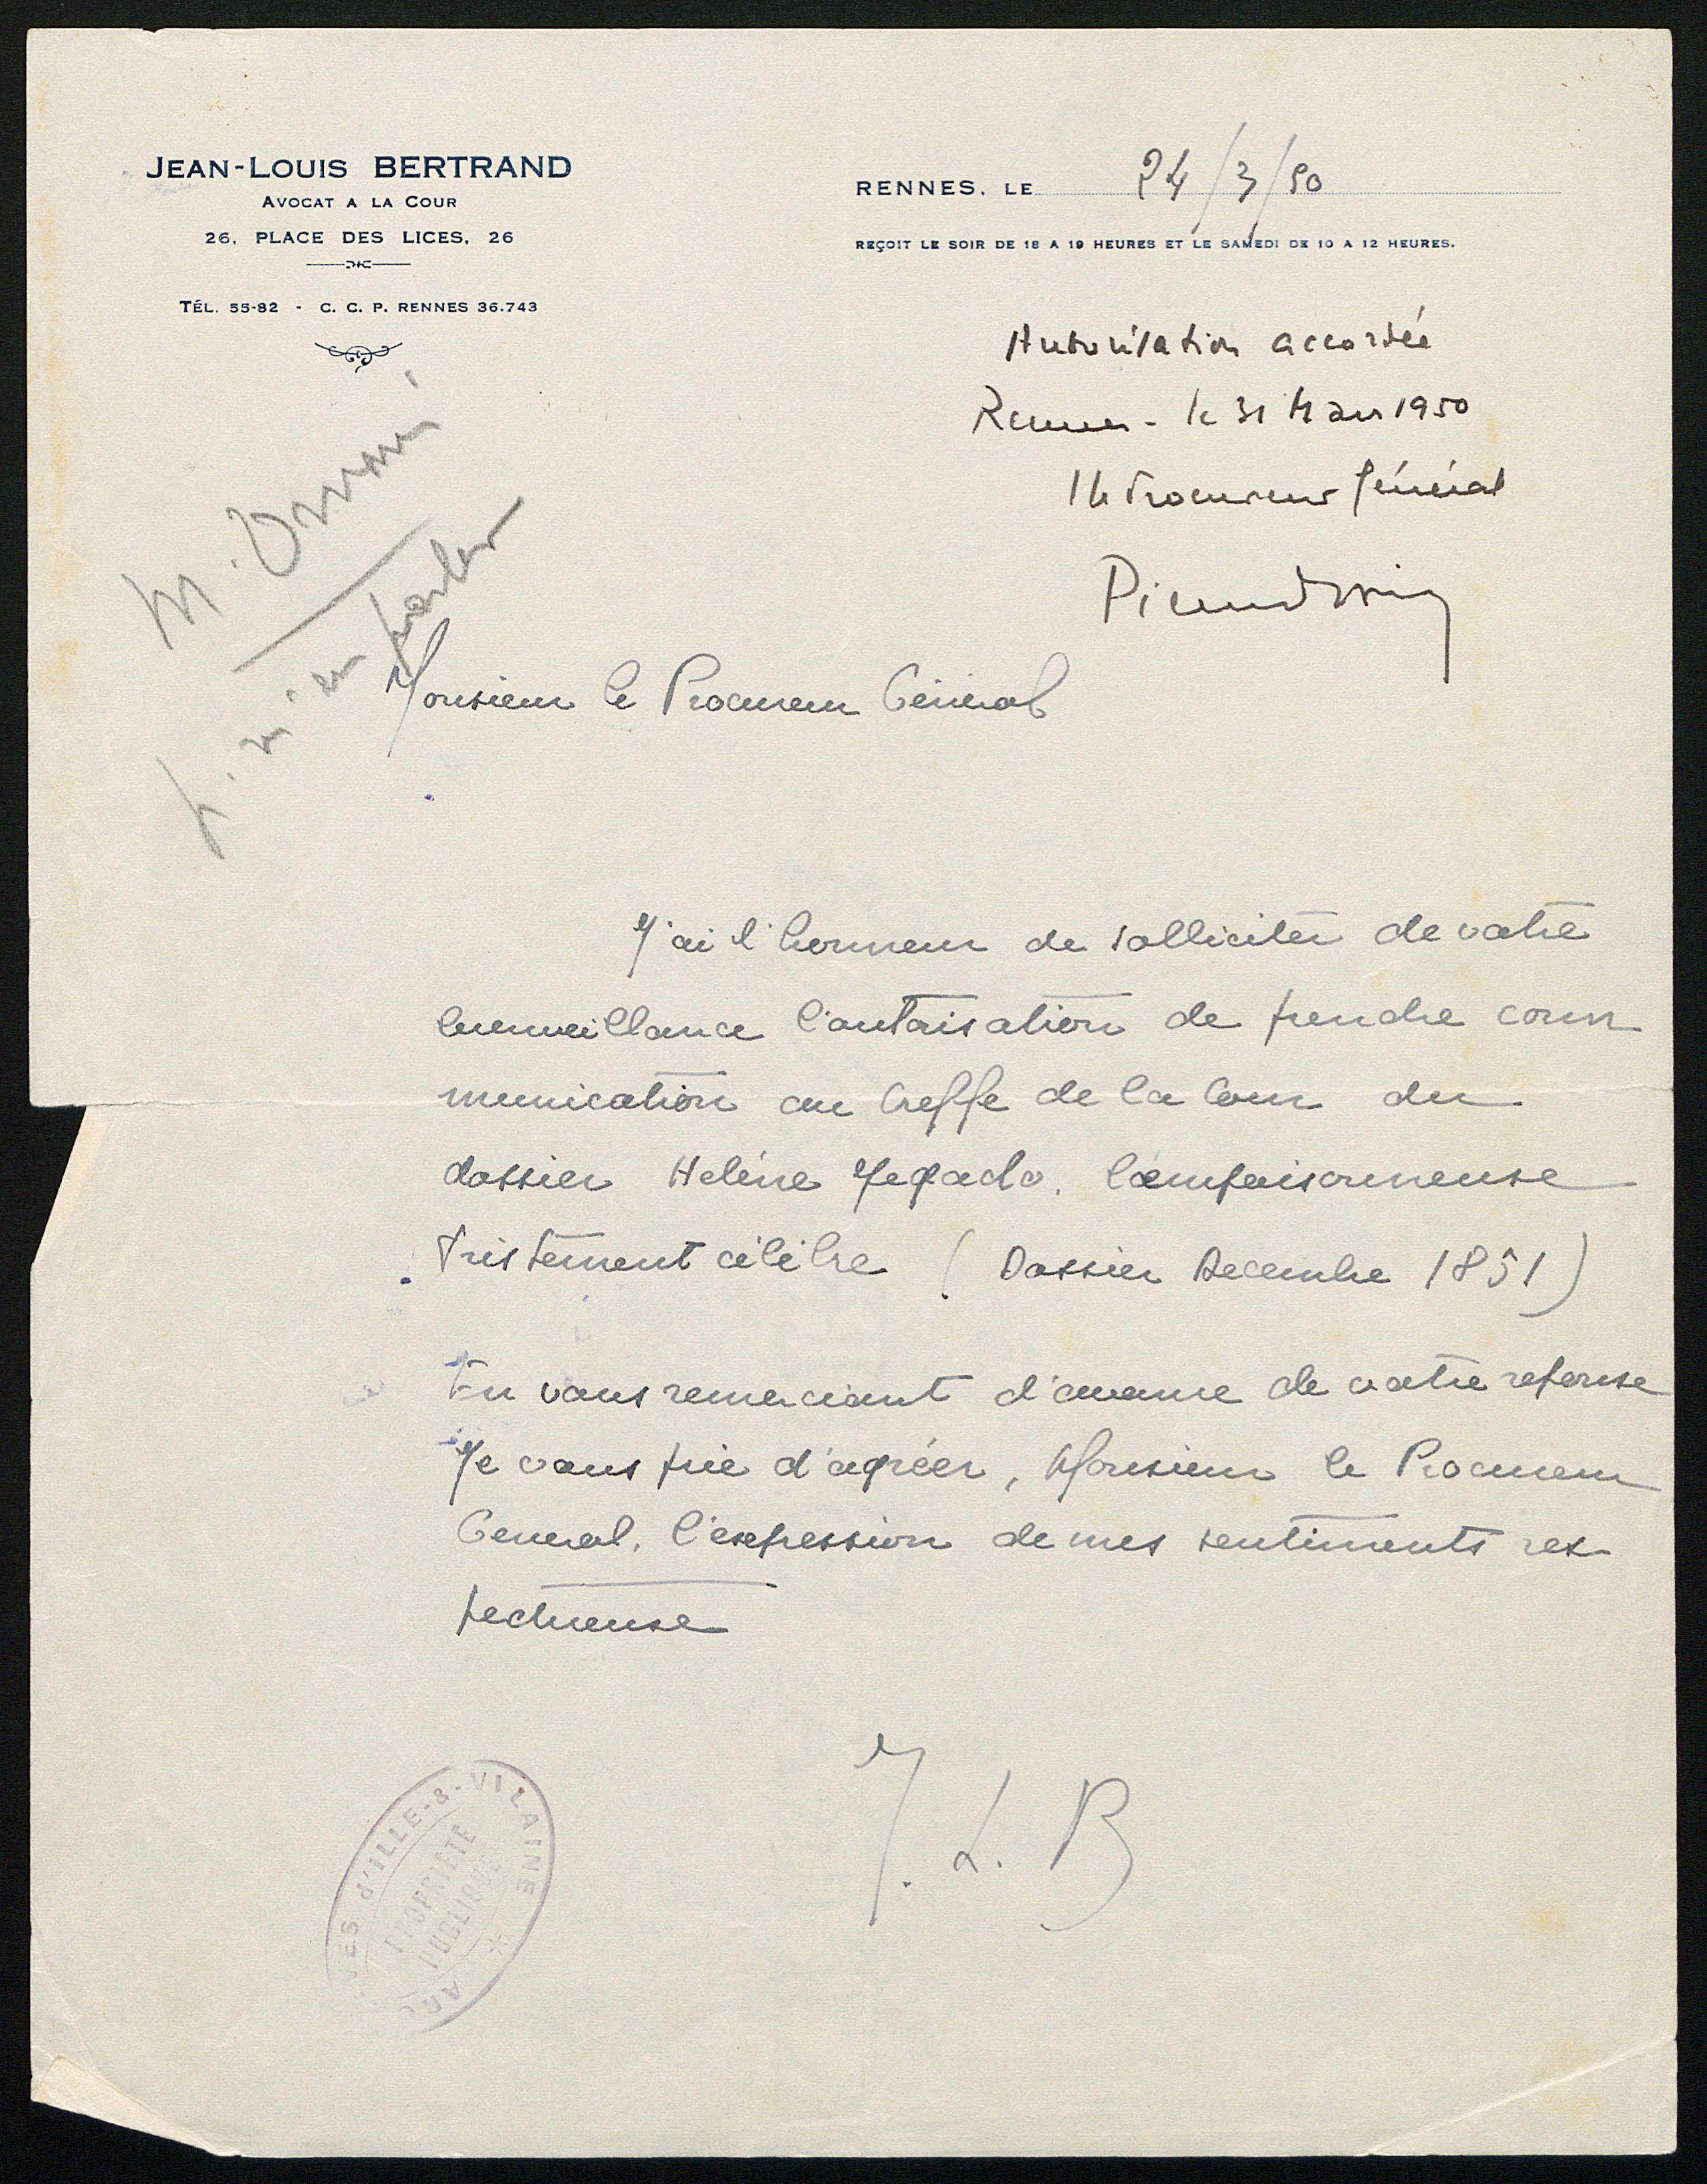 JEAN-LOUIS BERTRAND
AVOCAT A LA COUR
26, PLACE DES LICES, 26
TÉL. 55-82 - C. C. P. RENNES 36.743
RENNES, LE 24/3/50
REÇOIT LE SOIR DE 18 A 19 HEURES ET LE SAMEDI DE 10 A 12 HEURES.
Autorisation accordée
Rennes - le 31 Mars 1950
Le Procureur Général
M.
m'en parler
Monsieur le Procureur Général
J'ai l'honneur de solliciter de votre
bienveillance l'autorisation de prendre com
munication au Greffe de la Cour du
dossier Helène Jegado. l'empoisonneuse
tristement célèbre ( Dossier Decembre 1851 )
En vous remerciant d'avance de votre reponse
Je vous prie d'agréer, Monsieur le Procureur
General, l'expression de mes sentiments res
pectueuse
J. L. B
ARC VES d'ILLE-&-VILAINE *
PROPRIÉTÉ
PUBLIQUE